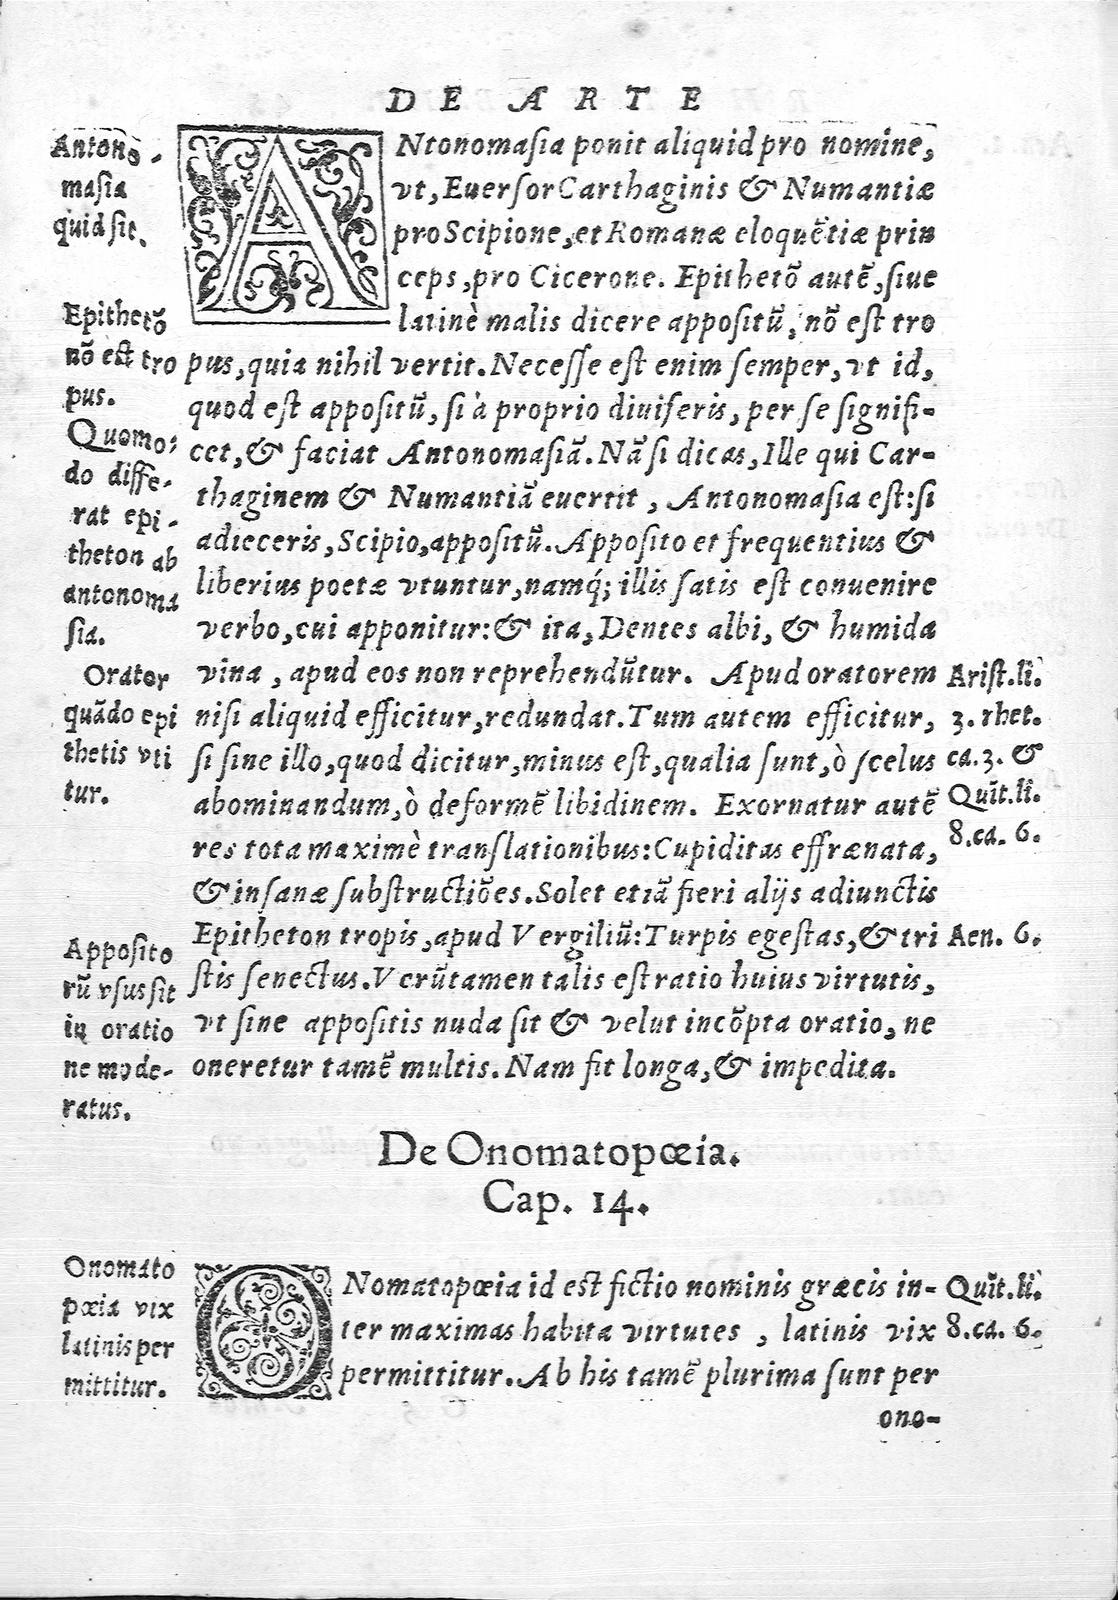 DE ARTE
Antono-
masia
quid sit.
ANtonomaſia ponit aliquid pro nomine,
vt, Euerſor Carthaginis & Numantiæ
pro Scipione, et Romanæ eloquẽtiæ prin
ceps, pro Cicerone. Epithetõ autẽ, ſiue
latinè malis dicere appoſitũ, nõ eſt tro
pus, quia nihil vertit. Neceſſe eſt enim ſemper, vt id,
quod eſt appoſitũ, ſi à proprio diuiſeris, per ſe ſignifi-
cet, & faciat Antonomaſiã. Nã ſi dicas, Ille qui Car-
thaginem & Numantiã euertit, Antonomaſia eſt: ſi
adieceris, Scipio, appoſitũ. Appoſito et frequentius &
liberius poetæ vtuntur, namq́; illis ſatis eſt conuenire
verbo, cui apponitur: & ita, Dentes albi, & humida
vina, apud eos non reprehendũtur. Apud oratorem
niſi aliquid efficitur, redundat. Tum autem efficitur,
ſi ſine illo, quod dicitur, minus eſt, qualia ſunt, ò ſcelus
abominandum, ò deformẽ libidinem. Exornatur autẽ
res tota maximè tranſlationibus: Cupiditas effrænata,
& inſanæ ſubſtructiões. Solet etiã fieri alijs adiunctis
Epitheton tropis, apud Vergiliũ: Turpis egeſtas, & tri
ſtis ſenectus. Verũtamen talis eſt ratio huius virtutis,
vt ſine appoſitis nuda ſit & velut incõpta oratio, ne
oneretur tamẽ multis. Nam fit longa, & impedita.
Epithetõ
nõ est tro
pus.
Quomo-
do diffe-
rat epi-
theton ab
antonoma
ſia.
Orator
quãdo epi
thetis vti
tur.
Appoſito
rũ vſus ſit
in oratio
ne mode-
ratus.
Ariſt. li.
3. rhet.
ca. 3. &
Quīt. li.
8. ca. 6.
Aen. 6.
De Onomatopœia.
Cap. 14.
Onomato
pœia vix
latinis per
mittitur.
ONomatopœia id est fictio nominis græcis in-
ter maximas habita virtutes, latinis vix
permittitur. Ab his tamẽ plurima ſunt per
Quīt. li.
8. ca. 6.
ono-